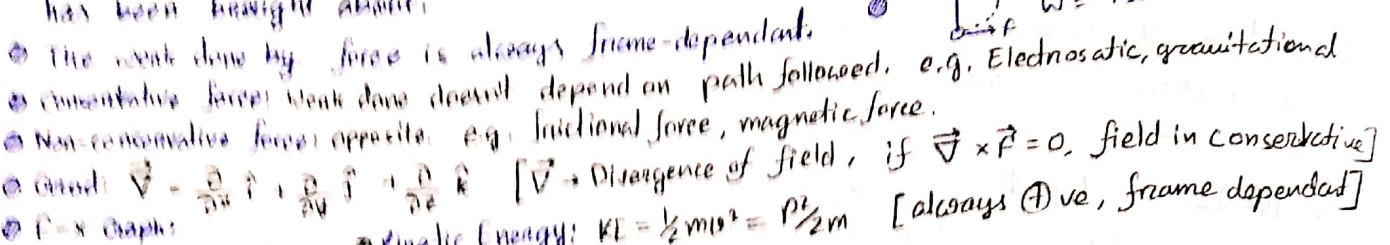 has been brought about.
W =
The work done by force is always frame-dependent.
F
Conservative force: Work done doesn't depend on path followed. e.g. Electrosatic, gravitational
Non-conservative force: opposite. e.g. Frictional force, magnetic force.
Grad: ∇⃗ = ∂/∂x î + ∂/∂y ĵ + ∂/∂z k̂ [∇⃗ → Divergence of field, if ∇⃗ × F⃗ = 0, field in conservative]
F-x Graph:
Kinetic Energy: KE = ½mv² = P²/2m [always ⊕ve, frame dependat]